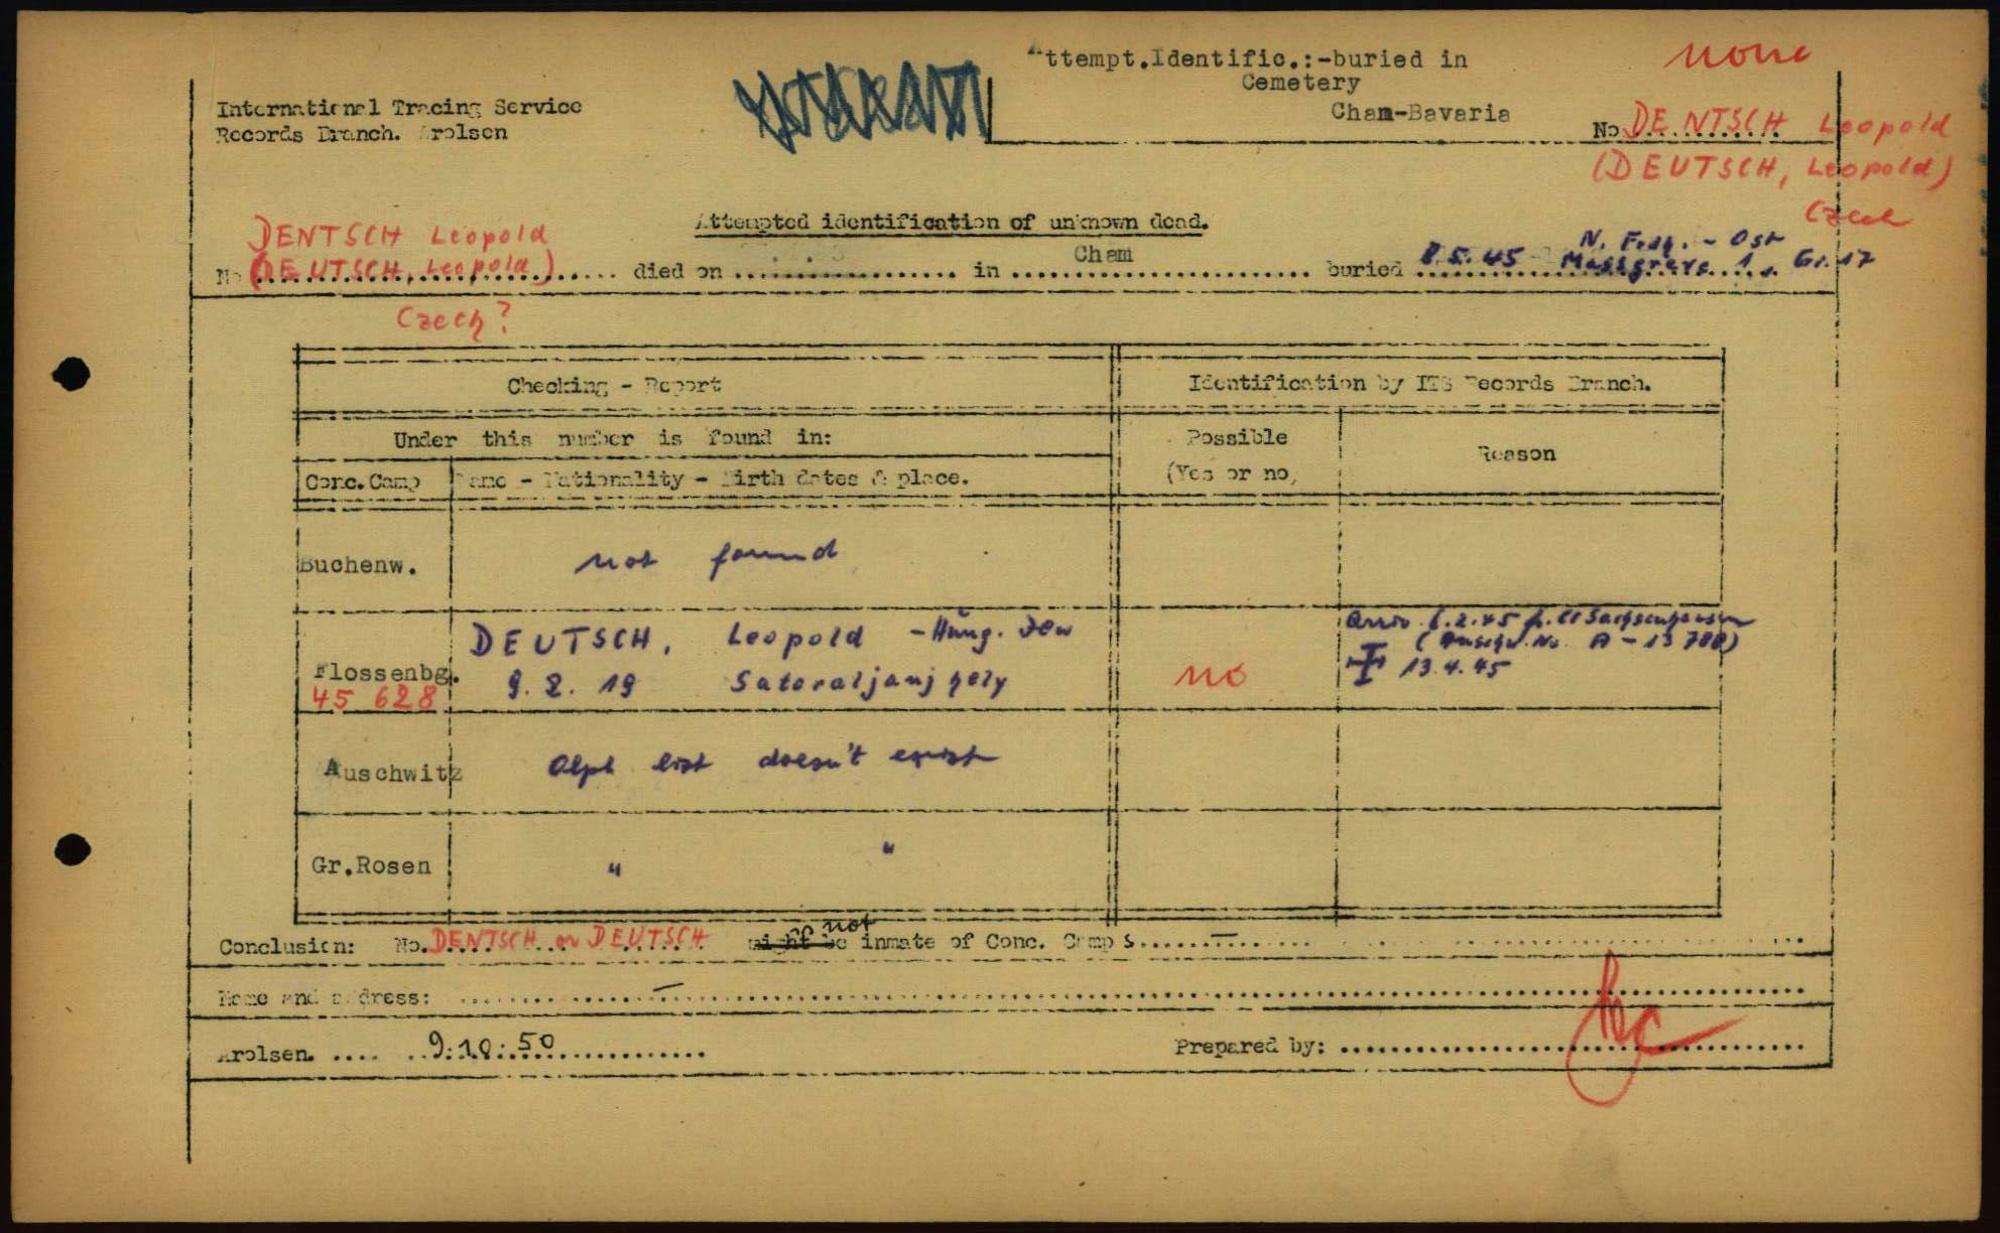 Attempt.Identific.:-buried in
Cemetery
Cham-Bavaria
none
International Tracing Service
Records Branch. Arolsen
No. DENTSCH Leopold
(DEUTSCH, Leopold)
Czech
Attempted identification of unknown dead.
DENTSCH Leopold
No (DEUTSCH, Leopold) died on in Cham buried 8.5.45 N. Frdh. - Ost
Massgrave 1, Gr. 17
Czech?
Checking - Report
Identification by ITS Records Branch.
Under this number is found in:
Possible
(Yes or no)
Reason
Conc.Camp
Name - Nationality - Birth dates & place.
Buchenw.
not found
Flossenbg.
45 628
DEUTSCH, Leopold - Hung. Jew
9.2.19 Satoraljaujhely
no
6.2.45 Sachsenhausen
(Auschw. No. A-13 788)
13.4.45
Auschwitz
Alph list doesn't exist
Gr.Rosen
" "
Conclusion: No. DENTSCH or DEUTSCH might be not inmate of Conc. Camps —
Name and address: —
Arolsen. 9.10.50
Prepared by: